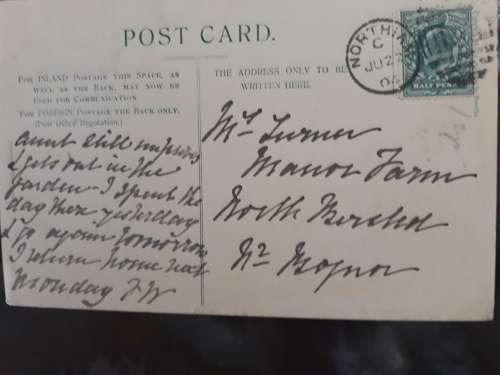 POST CARD.
FOR INLAND POSTAGE THIS SPACE, AS
WELL AS THE BACK, MAY NOW BE
USED FOR COMMUNICATION.
FOR FOREIGN POSTAGE THE BACK ONLY.
(Post Office Regulation.)
THE ADDRESS ONLY TO BE
WRITTEN HERE.
NORTHI
C
JU 27
04
HALF PENNY
Aunt still improving
& gets out in the
garden - I spent the
day there yesterday
& go again tomorrow
I return home next
Monday
Turner
Manor Farm
North Bersted
Nr Bognor